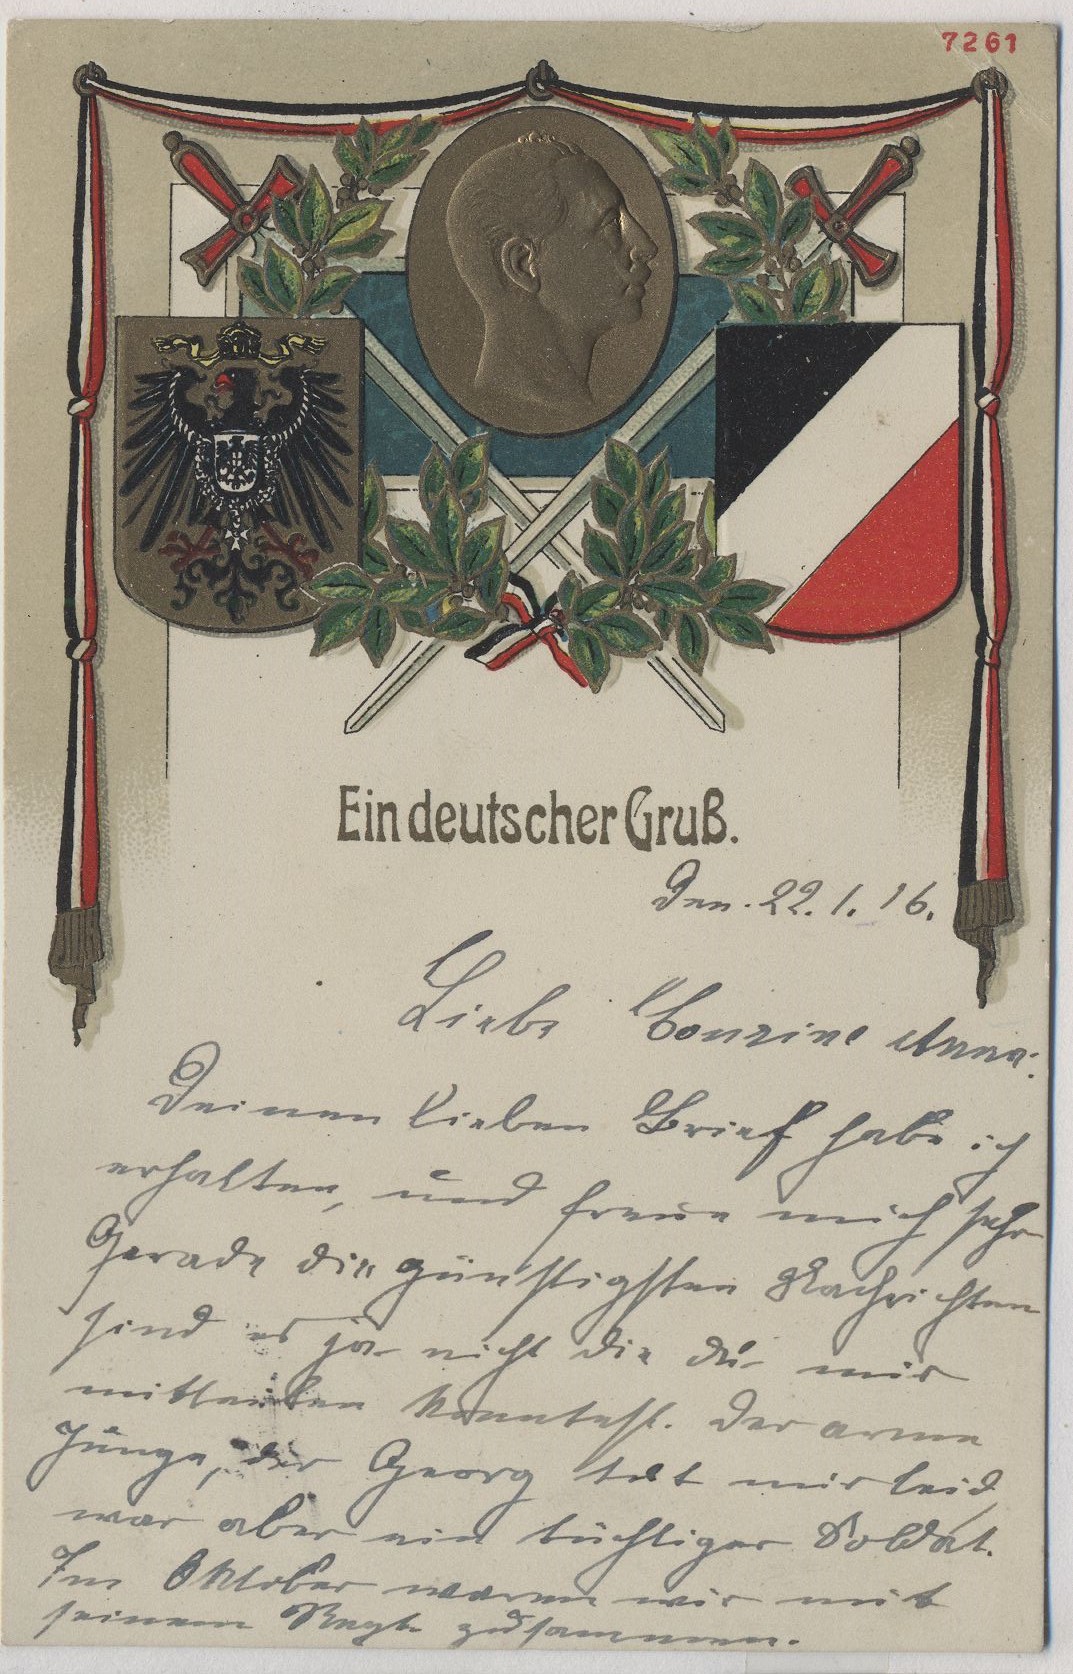 7261
Ein deutscher Gruß.
Den. 22. 1. 16.
Liebe Cousine Anna:
Deinen lieben Brief habe ich
erhalten, und freue mich sehr
Gerade die günstigsten Nachrichten
sind es ja nicht die du mir
mitteilen konntest. Der arme
Junge, der Georg tut mir leid,
war aber ein tüchtiger Soldat.
Im Oktober waren wir mit
seinem Regt. zusammen.